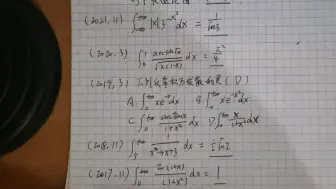 (2021,11) ∫_{-∞}^{+∞} |x| 3^{-x²} dx = 1/ln3
(2020,3) ∫_0^1 arcsin√x / √(x(1-x)) dx = π²/4
(2019,3) 下列反常积分发散的是 (D)
A. ∫_0^{+∞} xe^{-x} dx B ∫_0^{+∞} xe^{-x²} dx
C ∫_0^{+∞} arctanx / (1+x²) dx D ∫_0^{+∞} x / (1+x²) dx
(2018,11) ∫_5^{+∞} 1 / (x²-4x+3) dx = ½ ln2
(2017,11) ∫_0^{+∞} ln(1+x) / (1+x)² dx = 1